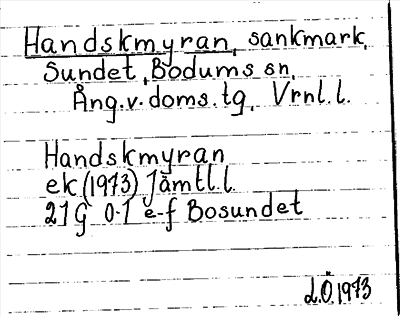 Handskmyran, sankmark,
Sundet, Bodums sn,
Ång.v.doms.tg, Vrnl.l.
Handskmyran
ek (1973) Jämtl.l.
21 G 0-1 e-f Bosundet
L.Ö.1973